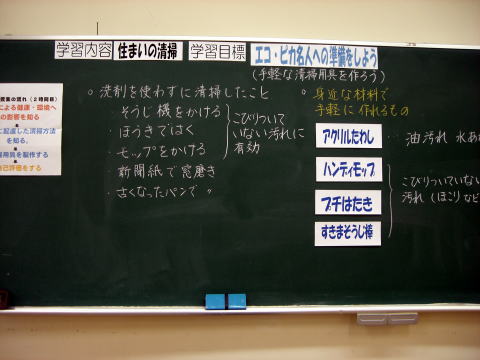 学習内容 住まいの清掃 学習目標 エコ・ピカ名人への準備をしよう
(手軽な清掃用具を作ろう)
授業の流れ（2時間目）
による健康・環境へ
の影響を知る
に配慮した清掃方法
を知る。
用具を製作する
自己評価をする
○ 洗剤を使わずに清掃したこと
・そうじ機をかける
・ほうきではく
・モップをかける
新聞紙で窓磨き
・古くなったパンで 〃
こびりついて
いない汚れに
有効
○ 身近な材料で
手軽に作れるもの
アクリルたわし
・・油汚れ 水あ
ハンディモップ
プチはたき
すきまそうじ棒
こびりついていない
汚れ(ほこりなど